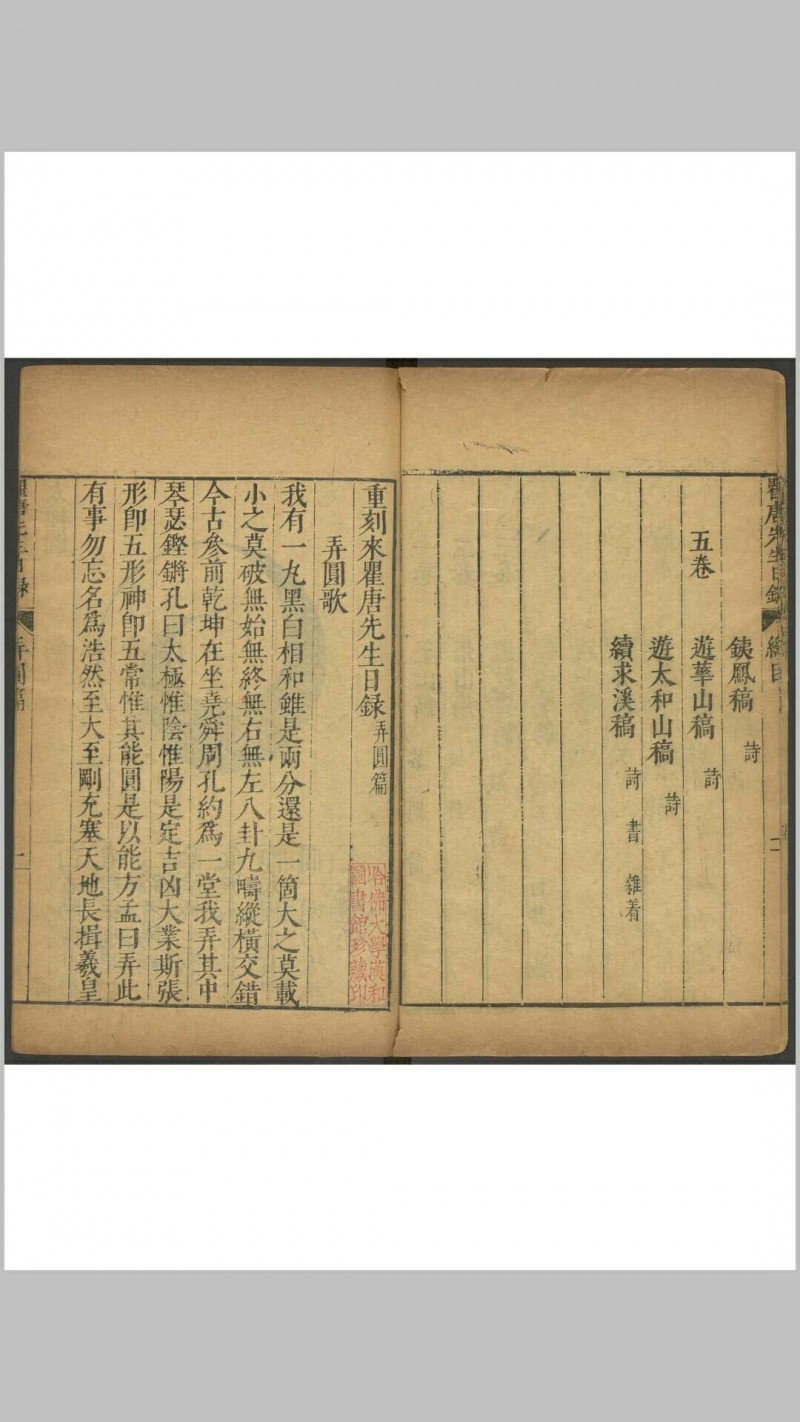 瞿唐先生日錄 總目 二
鐵鳳稿 詩
五卷
遊華山稿 詩
遊太和山稿 詩
續求溪稿 詩 書 雜着
重刻來瞿唐先生日録 弄圓篇
哈佛大學漢和
圖書館珍藏印
弄圓歌
我有一丸黑白相和雖是兩分還是一箇大之莫載
小之莫破無始無終無右無左八卦九疇縱橫交錯
今古參前乾坤在坐堯舜周孔約爲一堂我弄其中
琴瑟鏗鏘孔曰太極惟陰惟陽是定吉凶大業斯張
形卽五形神卽五常惟其能圓是以能方孟曰弄此
有事勿忘名爲浩然至大至剛充塞天地長揖羲皇
瞿唐先生日録 弄圓稿